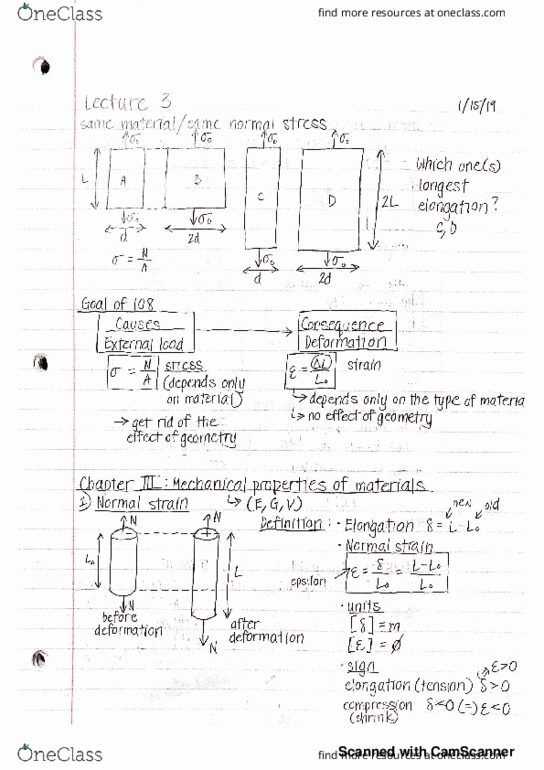 OneClass
find more resources at oneclass.com
Lecture 3
1/15/19
same material/same normal stress
σ₀ σ₀ σ₀ σ₀
L A B C D 2L
Which one(s)
longest
elongation?
C, D
σ₀ σ₀ σ₀ σ₀
d 2d d 2d
σ = N/A
Goal of 108
Causes
External load
Consequence
Deformation
σ = N/A stress
(depends only
on material)
→ get rid of the
effect of geometry
ε = ΔL/L₀ strain
↳ depends only on the type of materia
↳ no effect of geometry
Chapter III: Mechanical properties of materials
↳ (E, G, V)
1) Normal strain
N N
L₀ L
N
before
deformation
after
deformation
N
Definition: · Elongation δ = L - L₀
new old
· Normal strain
epsilon → ε = δ/L₀ = (L-L₀)/L₀
· units
[δ] = m
[ε] = ∅
· sign
elongation (tension) δ > 0
ε>0
compression δ<0 (=) ε<0
(shrink)
OneClass
find more resources at oneclass.com
Scanned with CamScanner